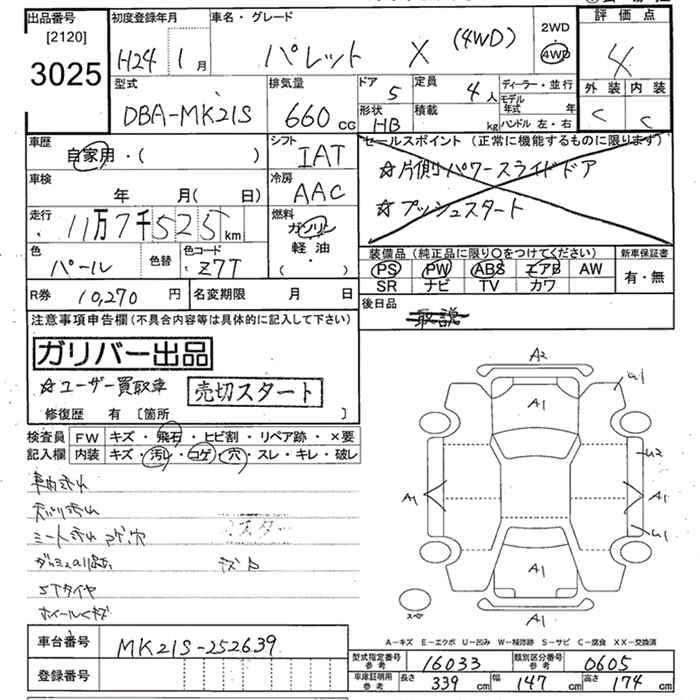 出品番号 [2120] 3025
初度登録年月 H24 1月
車名・グレード パレット X (4WD)
2WD ・ 4WD
評価点 4
外装 C 内装 C
型式 DBA-MK21S
排気量 660 CC
ドア 5 定員 4人
形状 HB 積載 kg
ディーラー・並行
モデル年式 年
ハンドル 左・右
車歴 自家用・( )
シフト IAT
セールスポイント (正常に機能するものに限ります)
☆片側パワースライドドア
☆プッシュスタート
車検 年 月( 日)
冷房 AAC
走行 11万7千525km
燃料 ガソリン 軽油・( )
色 パール 色替 色コード Z7T
装備品 (純正品に限り○をつけてください)
PS PW ABS エアB AW
SR ナビ TV カワ
新車保証書 有・無
R券 10,270円 名変期限 月 日
後日品 取説
注意事項申告欄(不具合内容等は具体的に記入して下さい)
ガリバー出品
☆ユーザー買取車 売切スタート
修復歴 有 [箇所 ]
検査員記入欄
FW キズ・飛石・ヒビ割・リペア跡・×要
内装 キズ・汚レ・コゲ・穴・スレ・キレ・破レ
シート汚れ コゲ穴
STタイヤ
ホイールキズ
A2
A1
U1
A1
U2
A1
A1
U1
A1
A1
スペア
A-キズ E-エクボ U-凹み W-補修跡 S-サビ C-腐食 XX-交換済
車台番号 MK21S-252639
登録番号
型式指定番号 参考 16033 類別区分番号 参考 0605
車庫証明用 参考 長さ 339cm 幅 147cm 高さ 174cm